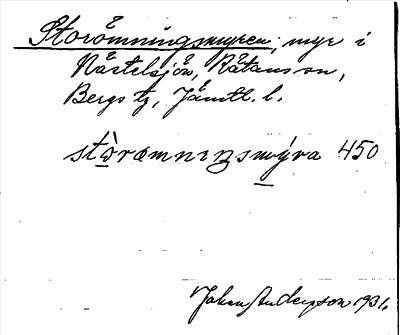 Storåmningsmyren, myr i
Nästelsjön, Rätans sn,
Bergs tg, Jämtl. l.
stòræmnıŋsmýra 450
Johan Anderson 1931.